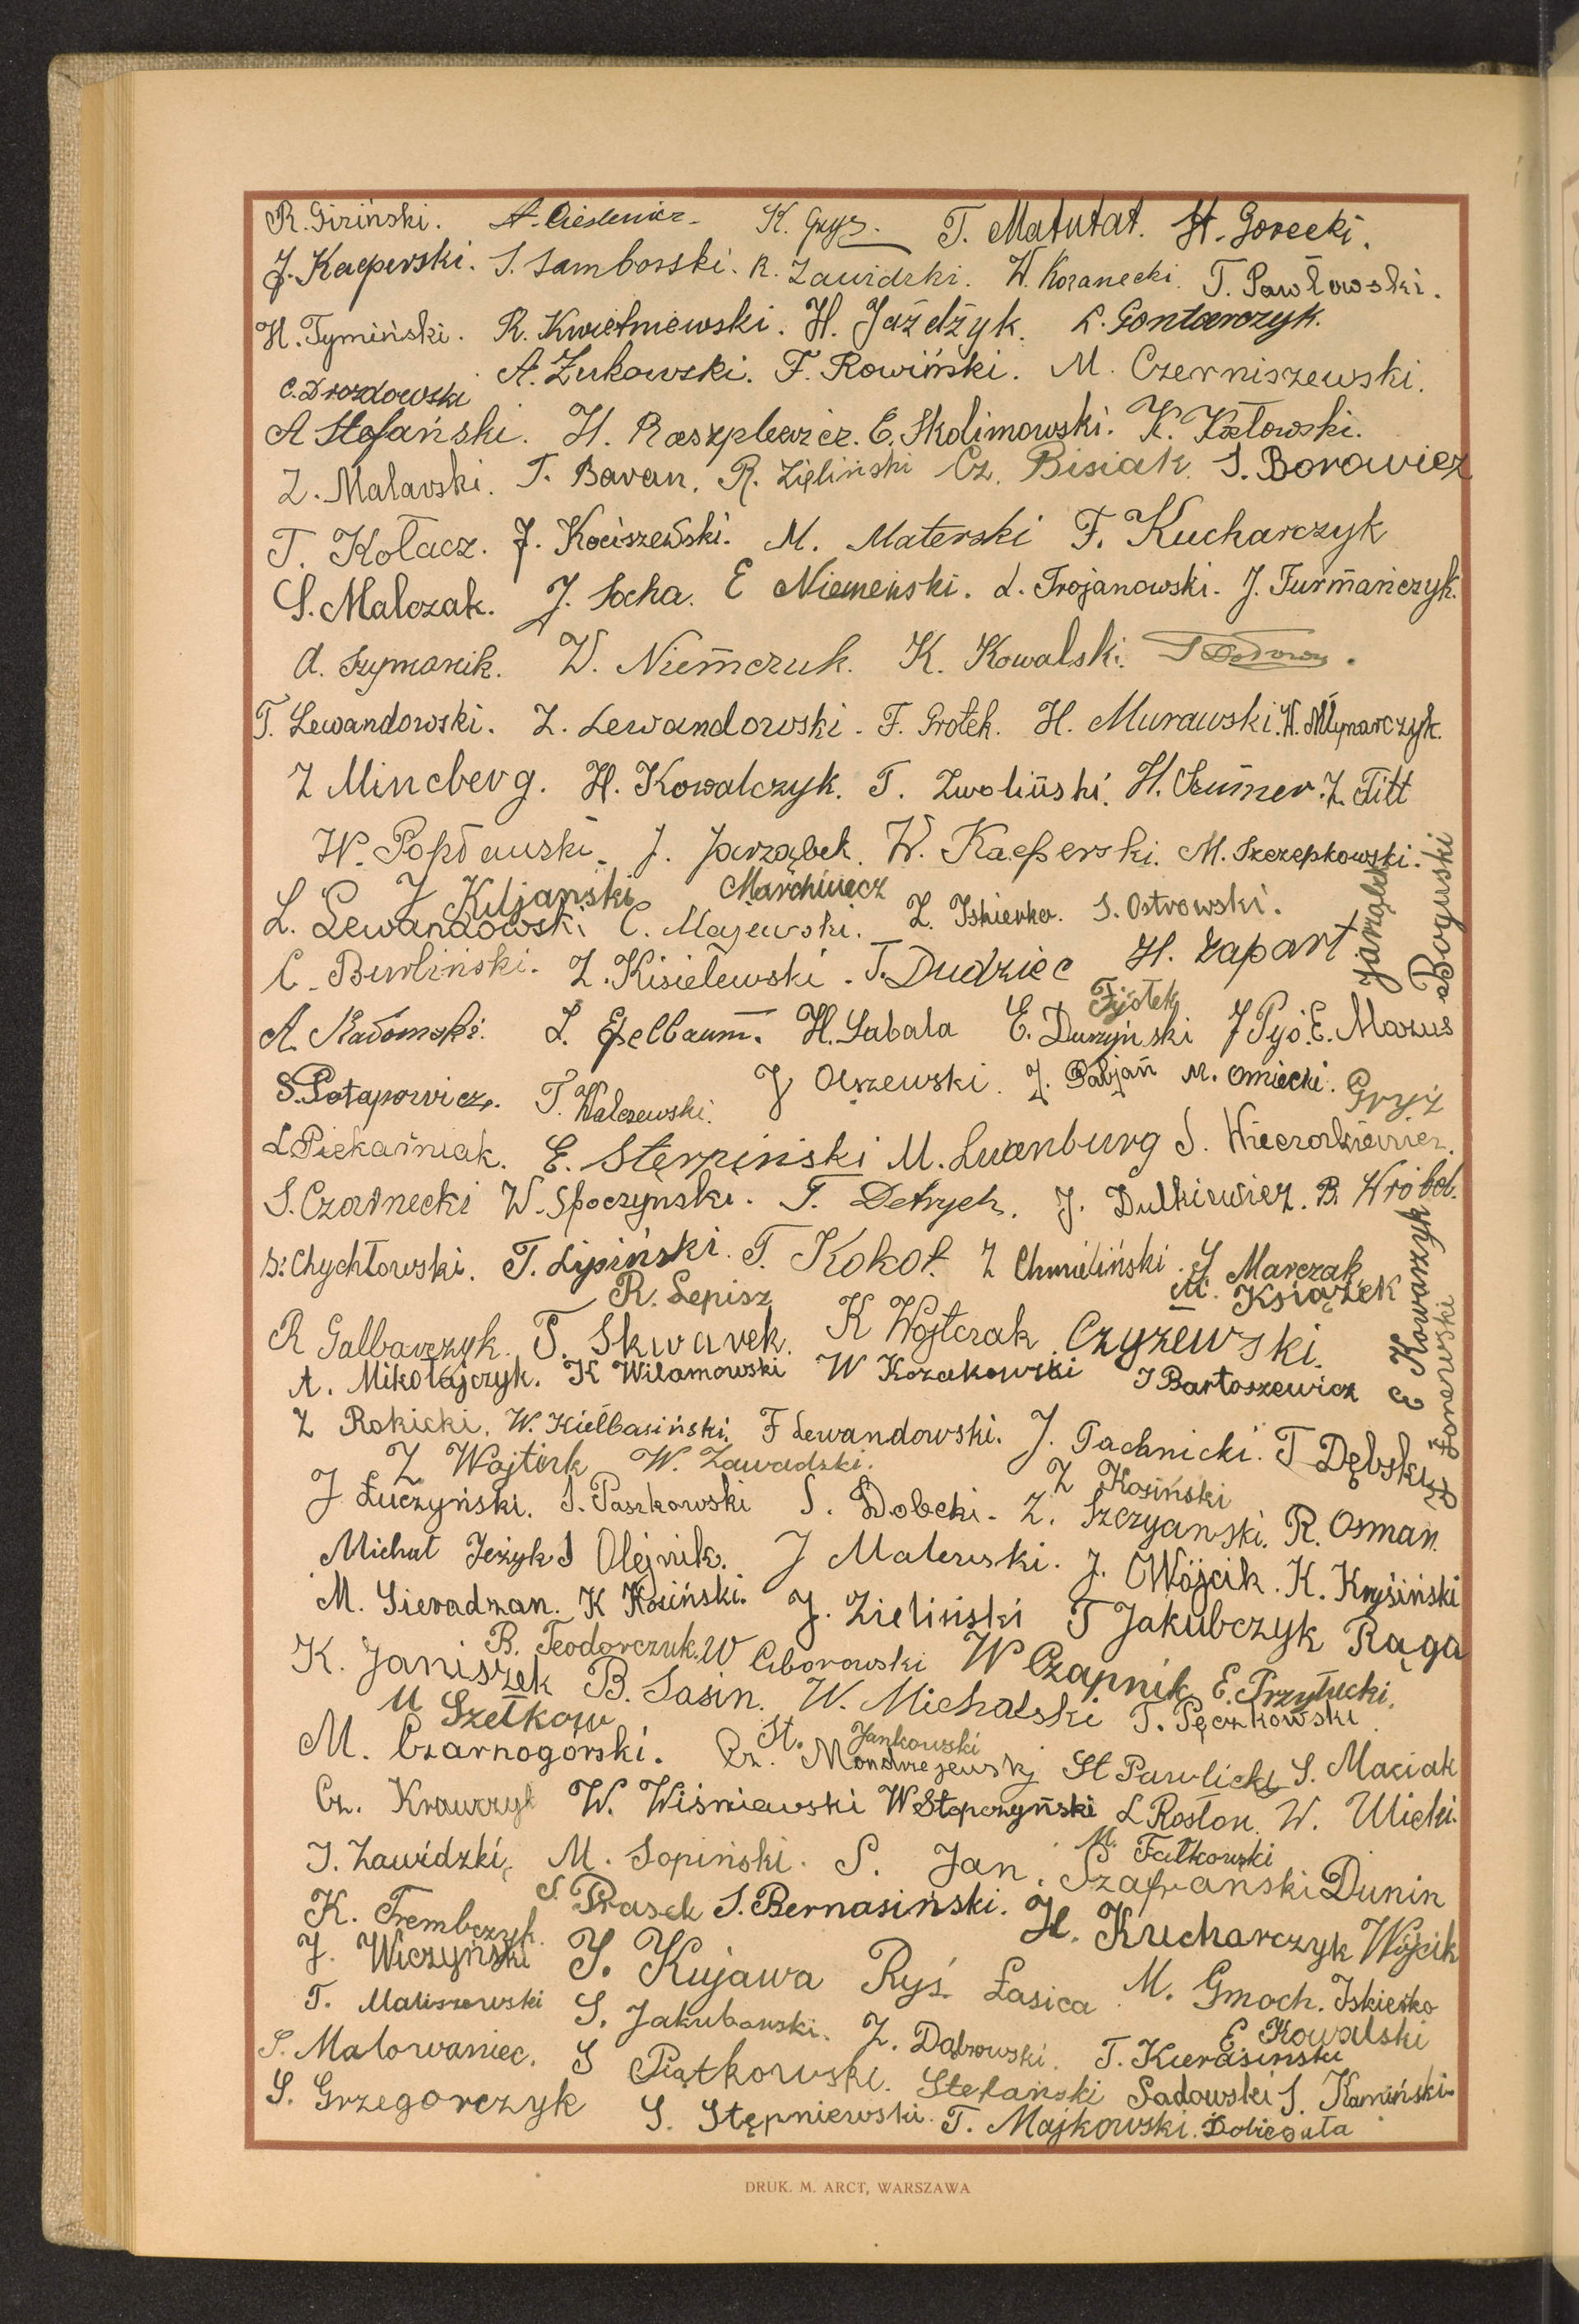 R. Giziński. A. Cieślewicz K. Gryz. T. Matutat. St. Gorecki.
J. Kacperski. S. Samborski. R. Zawidzki. W. Koranecki. T. Pawłowski.
H. Tymiński. R. Kwietniewski. H. Jażdżyk. L. Gontarczyk.
C. Drozdowski A. Żukowski. F. Rowiński. M. Czerniszewski.
A Stefański. H. Raszplewicz. E. Skolimowski. K. Kozłowski.
Z. Malarski. T. Baran. R. Zieliński Cz. Bisiak S. Borowicz
T. Kołacz. J. Kociszewski. M. Materski F. Kucharczyk
S. Malczak. J. Socha. E Niemeński. L. Trojanowski. J. Furmańczyk.
A. Szymanik. W. Niemczuk. K. Kowalski.
T. Lewandowski. Z. Lewandowski. F. Grotek. H. Murawski. W. Młynarczyk.
Z Mincberg. H. Kowalczyk. T. Zwoliński. H. Z. Titt
W. Popławski. J. Jarząbek. W. Kacperski. M. Szczepkowski.
J Kiljański Marchwacz
L. Lewandowski C. Majewski. Z. Iskierka. S. Ostrowski.
C. Burliński. Z. Kisielewski. T. Dudziec H. Zapart Jarząbek Boguski
Fijołek
A. Radomski. L. Epelbaum. H. Sabala E. Durzyński J Pyó. E. Mazus
S. Potapowicz. T. Walczewski. J Olszewski. J. Pabjań M. Omiecki. Gryż
L Piekarniak. E. Sterpiński M. Luxenburg S. Wieczorkiewicz.
S. Czarnecki W. Spoczyński. T. Detrych. J. Dulkiewicz. B. Wróbel.
S. Chychłowski. T. Lipiński. T. Kokot. Z Chmieliński. J Marczak
R. Lepisz M. Książek
R Galbarczyk. T. Skwarek. K Wojtczak. Czyżewski.
A. Mikołajczyk. K Wilamowski W Kozakowski J Bartoszewicz E Kowarzyk
Z Rokicki. W. Kiełbasiński. F Lewandowski. J. Pachnicki. T Dębski Z Łonewski
Z Wojtirk W. Zawadzki. Z Kosiński
J Łuczyński. S. Paszkowski S. Dobecki. Z. Szczyanski. R. Osman.
Michał Jeżyk S Olejnik. J Malewski. J. Wójcik. K. Krysiński
M. Sieradzan. K Kosiński. J. Zieliński T Jakubczyk Rąga
B. Teodorczuk. W Ciborowski W Czapnik E. Przyłucki.
K. Janiszek B. Sasin. W. Michalski T. Pęczkowski
M Szetkow St. Jankowski
M. Czarnogórski. Cz. Mondrzejewski St Pawlicki S. Maciak
Cz. Krawczyk W. Wiśniewski W Stepczyński L Rosłon. W. Ulicki.
M. Fatkowski
J. Zawidzki. M. Sopiński. S. Jan. Szafrański Dunin
K. Trembczyk. S. Prasek S. Bernasiński. H. Kucharczyk Wójcik
J. Wiczyński S. Kujawa Ryś. Łasica M. Gmoch. Iskierko
T. Maliszewski S. Jakubowski. Z. Dąbrowski. T. Kierasiński E Kowalski
S. Malowaniec. S Piątkowski. Stefański Sadowski S. Kamiński.
S. Grzegorczyk S. Stępniewski. T. Majkowski. Dobiegała
DRUK. M. ARCT, WARSZAWA